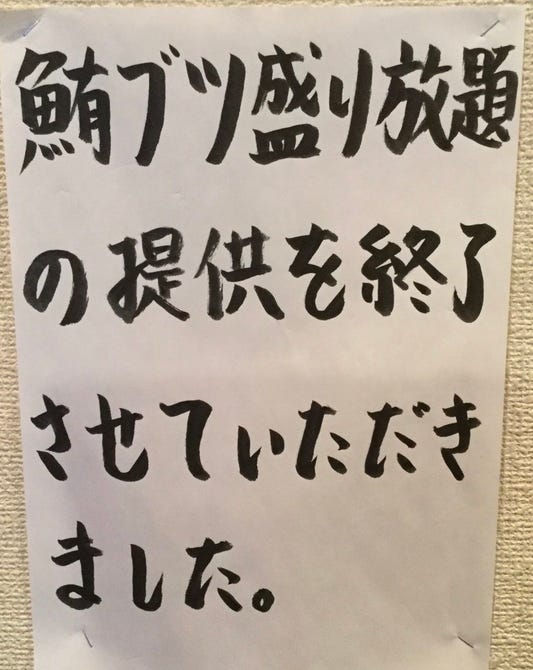 鮪ブツ盛り放題
の提供を終了
させていただき
ました。